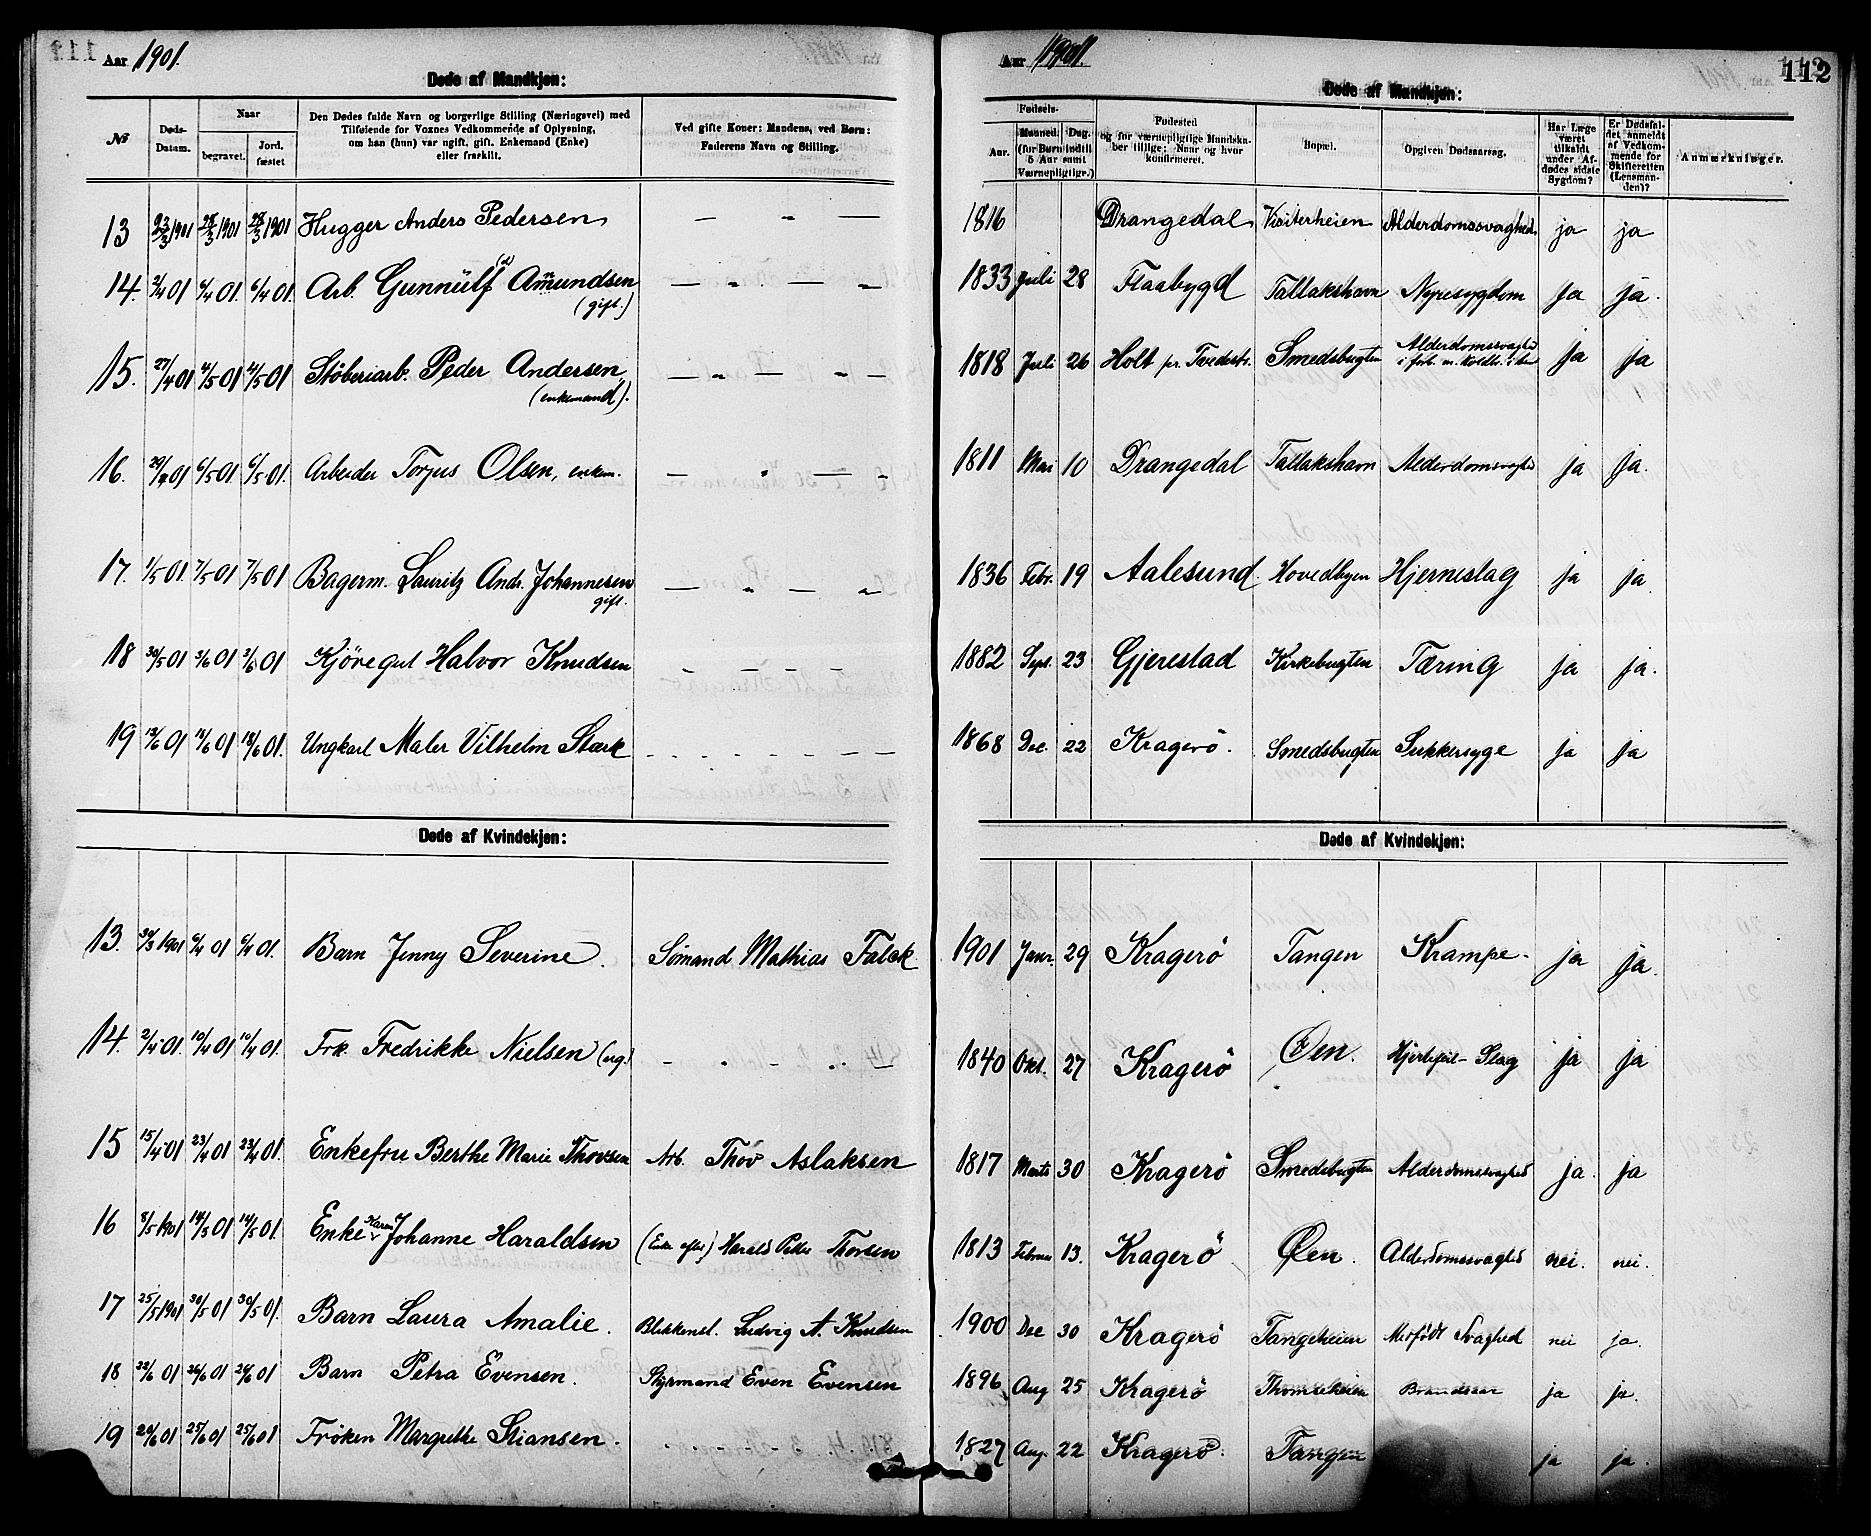 Aar 1901.
Døde af Mandkjøn:
№
Døds-Datum.
Naar
begravet.
Jord. fæstet
Den Dødes fulde Navn og borgerlige Stilling (Næringsvei) med
Tilføiende for Voxnes Vedkommende af Oplysning,
om han (hun) var ugift, gift, Enkemand (Enke)
eller fraskilt.
Ved gifte Koner: Mandens, ved Børn:
Faderens Navn og Stilling.
13 23/3 1901 28/3 1901 28/3 1901 Hugger Anders Pedersen — - —
14. 2/4 01 6/4 01. 6/4 01. Arb. Gunnulf Amundsen — „ — „
(gift.)
15. 27/4 01 4/5 01 4/5 01 Stöberiarb. Peder Andersen, — „ — „ —
(enkemand).
16. 29/4 01 6/5 01 6/5 01. Arbeider Torjus Olsen, enkem. — „ — —
17. 1/5 01. 7/5 01 7/5 01 Bagerm. Lauritz Andr. Johannesen — „ — „
gift.
18 30/5 01 3/6 01 3/6 01 Kjöregut Halvor Knudsen - - - -
19 13/6 01 18/6 01 18/6 01. Ungkarl Maler Vilhelm Stærk - - - - - -
Døde af Kvindekjøn:
13. 30/3 1901 6/4 01 6/4 01. Barn Jenny Severine. Sömand Mathias Falck
14. 2/4 01. 10/4 01 10/4 01. Frk. Fredrikke Nielsen (ug.) - „ - „ -
15 15/4 01 23/4 01 23/4 01. Enkefru Berthe Marie Thovsen Arb. Thov Aslaksen
16 8/5 1901 14/5 01 14/5 01. Enke Karen Johanne Haraldsen (Enke efter) Harald Peder Thorsen
17 25/5 1901 30/5 01 30/5 01. Barn Laura Amalie. Blikkensl. Ludvig A. Knudsen
18 22/6 01 26/6 01 26/6 01 Barn Petra Evensen. Styrmand Even Evensen
19 20/6 01 25/6 01 25/6 01 Fröken Margrethe Stiansen.
Aar 1901.
112
Døde af Mandkjøn:
Fødsels-
Aar.
Maaned. Dag.
(for Børn indtil
5 Aar samt
Værnepligtige.)
Fødested
og for værnepligtige Mandska-
ber tillige: Naar og hvor
konfirmeret.
Bopæl.
Opgiven Dødsaarsag.
Har Læge
været
tilkaldt
under Af-
dødes sidste
Sygdom?
Er Dødsfal-
det anmeldt
af Vedkom-
mende for
Skifteretten
(Lensman-
den)?
Anmærkninger.
1816 Drangedal, Visiterheien Alderdomssvaghed. ja ja
1833 Juli 28 Flaabygd Tallakshavn Nyresygdom ja ja.
1818 Juli 26 Holt pr. Tvedestr. Smedsbugten Alderdomssvaghed ja ja
1811 Mai 10 Drangedal Tallakshavn Alderdomssvaghed ja ja.
1836 Febr. 19 Aalesund. Hovedbyen Hjerneslag ja ja
1882 Sept. 23 Gjerestad Kirkebugten Tæring ja ja.
1868 Dec. 22 Kragerö. Smedsbugten Sukkersyge ja ja
Døde af Kvindekjøn:
1901 Janr. 29 Kragerö Tangen Krampe - ja ja.
1840 Okt. 27 Kragerö Øen. Hjertefeil - Slag ja ja
1817 Marts 30 Kragerö Smedsbugten Alderdomssvaghed ja. ja
1813 Februar 13. Kragerö Øen. Alderdomssvaghed nei. nei.
1900 Dec 30 Kragerö Tangeheien Medfödt Svaghed nei ja.
1896 Aug 25 Kragerö Thomseheien Brandsaar ja ja.
1827 Aug. 22 Kragerö. Tangen ja ja.